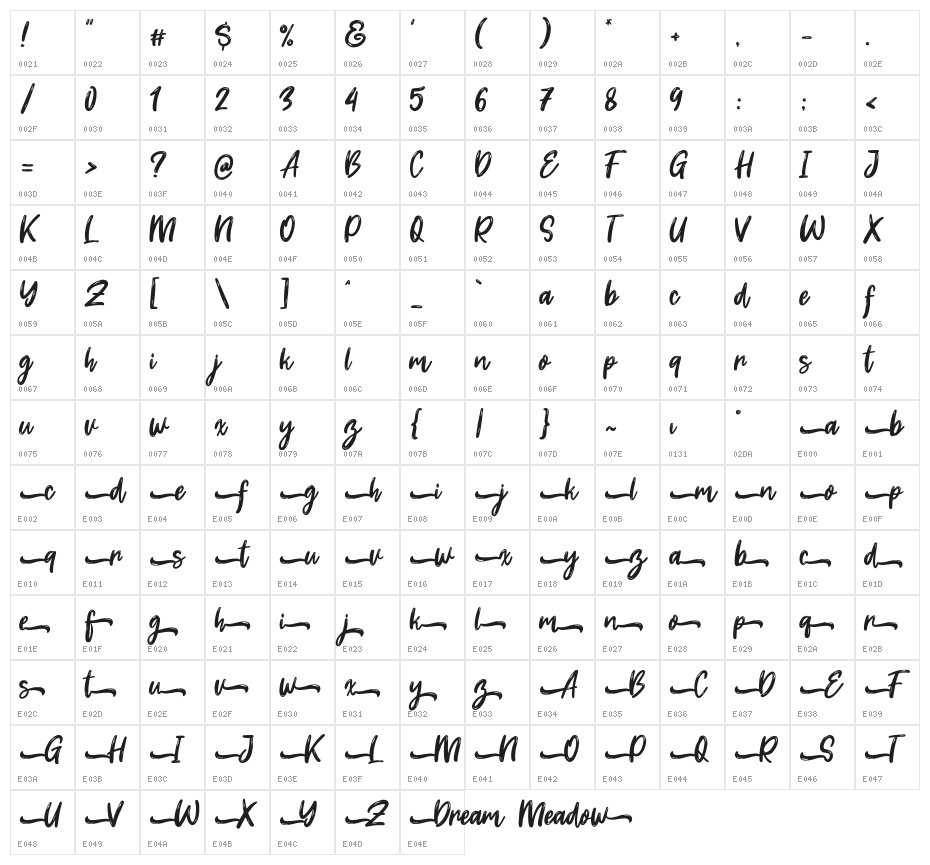 ! " # $ % & ' ( ) * + , - .
0021 0022 0023 0024 0025 0026 0027 0028 0029 002A 002B 002C 002D 002E
/ 0 1 2 3 4 5 6 7 8 9 : ; <
002F 0030 0031 0032 0033 0034 0035 0036 0037 0038 0039 003A 003B 003C
= > ? @ A B C D E F G H I J
003D 003E 003F 0040 0041 0042 0043 0044 0045 0046 0047 0048 0049 004A
K L M N O P Q R S T U V W X
004B 004C 004D 004E 004F 0050 0051 0052 0053 0054 0055 0056 0057 0058
Y Z [ \ ] ^ _ ` a b c d e f
0059 005A 005B 005C 005D 005E 005F 0060 0061 0062 0063 0064 0065 0066
g h i j k l m n o p q r s t
0067 0068 0069 006A 006B 006C 006D 006E 006F 0070 0071 0072 0073 0074
u v w x y z { | } ~ ı ˚ a b
0075 0076 0077 0078 0079 007A 007B 007C 007D 007E 0131 02DA E000 E001
c d e f g h i j k l m n o p
E002 E003 E004 E005 E006 E007 E008 E009 E00A E00B E00C E00D E00E E00F
q r s t u v w x y z a b c d
E010 E011 E012 E013 E014 E015 E016 E017 E018 E019 E01A E01B E01C E01D
e f g h i j k l m n o p q r
E01E E01F E020 E021 E022 E023 E024 E025 E026 E027 E028 E029 E02A E02B
s t u v w x y z A B C D E F
E02C E02D E02E E02F E030 E031 E032 E033 E034 E035 E036 E037 E038 E039
G H I J K L M N O P Q R S T
E03A E03B E03C E03D E03E E03F E040 E041 E042 E043 E044 E045 E046 E047
U V W X Y Z Dream Meadow
E048 E049 E04A E04B E04C E04D E04E